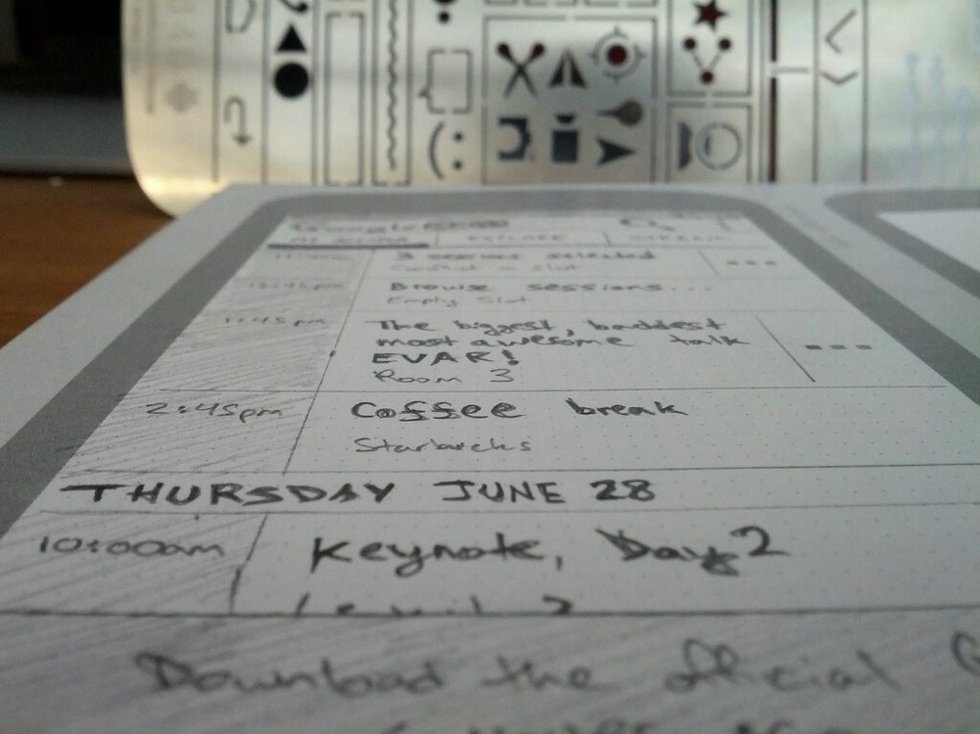 Google
EXPLORE STREAM
3 sessions selected
Conflict in slot
12:45pm Browse sessions...
Empty Slot
1:45pm The biggest, baddest
most awesome talk
EVAR!
Room 3
2:45pm Coffee break
Starbucks
THURSDAY JUNE 28
10:00am Keynote, Day 2
Download the official